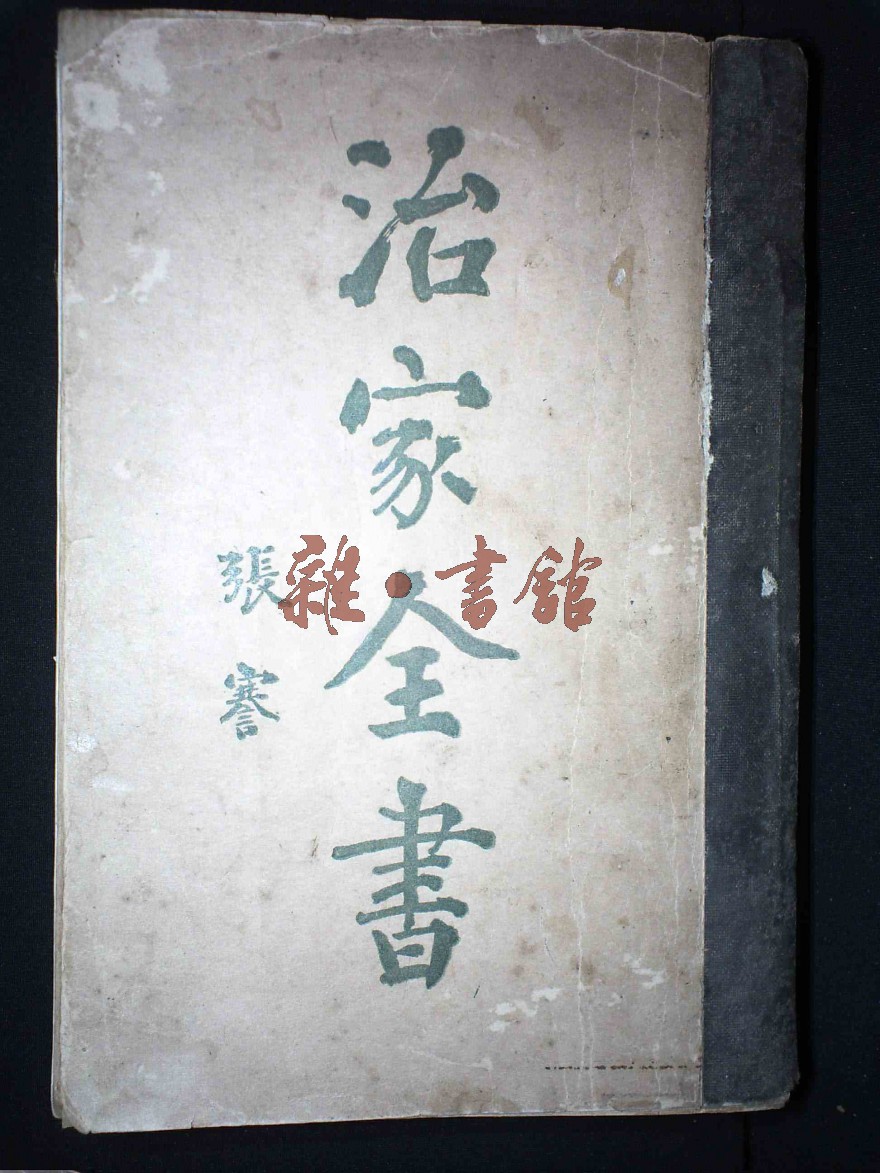 治家全書
張謇
雜·書館